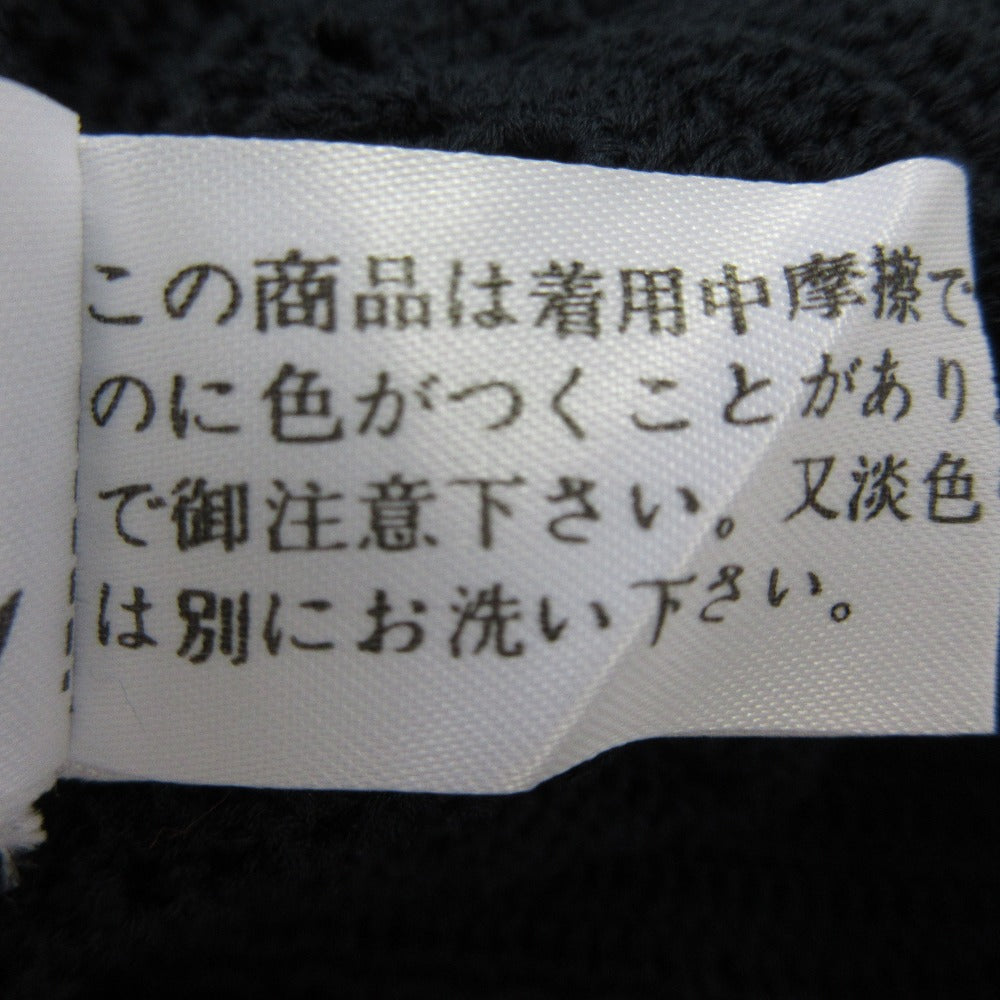 この商品は着用中摩擦で
のに色がつくことがあり
で御注意下さい。又淡色
は別にお洗い下さい。